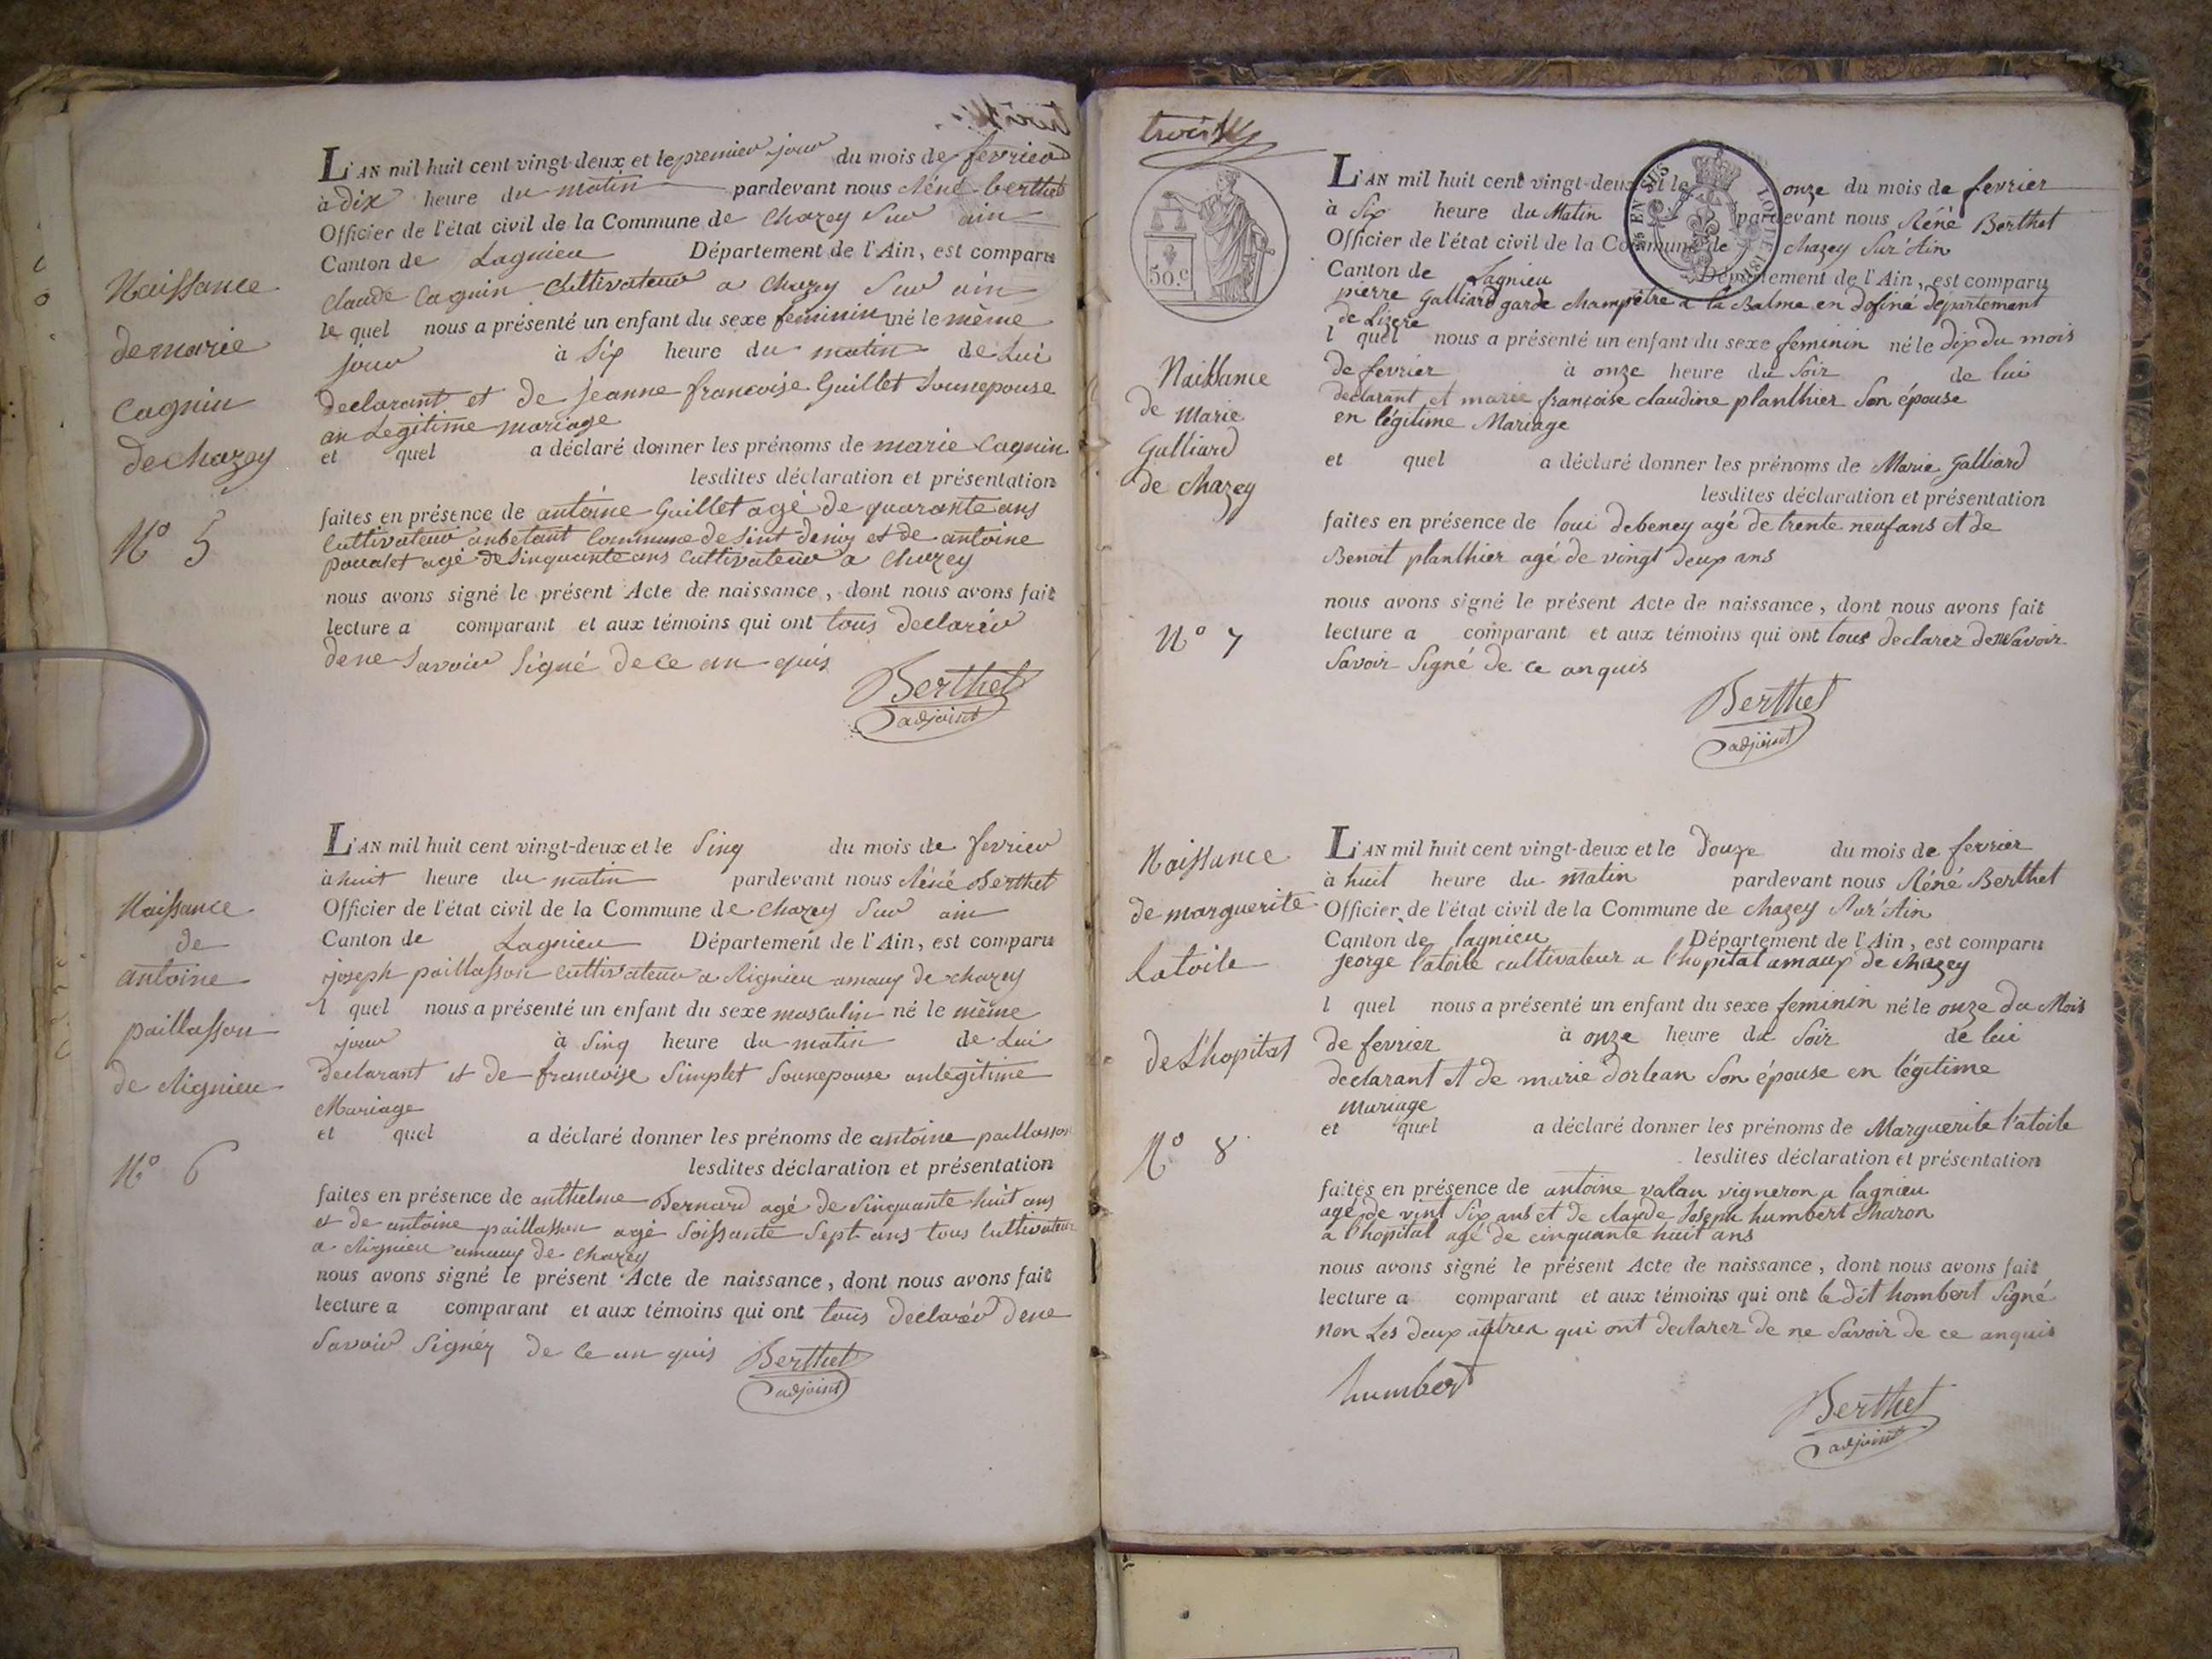 Naissance
de marie
Cagnin
de chazey
N° 5
L'AN mil huit cent vingt-deux et le premier jour du mois de fevrier
à dix heure du matin pardevant nous Réné Berthet
Officier de l'état civil de la Commune de Chazey Sur ain
Canton de Lagnieu Département de l'Ain, est comparu
Claude Cagnin Cultivateur a Chazey Sur ain
le quel nous a présenté un enfant du sexe feminin né le même
jour à Six heure du matin de Lui
declarant et de jeanne francoise Guillet Sounepouse
an Legitime mariage
et quel a déclaré donner les prénoms de marie Cagnin
lesdites déclaration et présentation
faites en présence de antoine Guillet agé de quarante ans
Cultivateur anbetant Commune de Sint denis et de antoine
poualet agé de Sinquante ans Cultivateur a Chazey
nous avons signé le présent Acte de naissance, dont nous avons fait
lecture a comparant et aux témoins qui ont tous declarér
de ne Savoir Signé de ce an quis
Berthet
adjoint
Naissance
de
antoine
paillasson
de Rignieu
N° 6
L'AN mil huit cent vingt-deux et le Sinq du mois de fevrier
à huit heure du matin pardevant nous Réné Berthet
Officier de l'état civil de la Commune de Chazey Sur ain
Canton de Lagnieu Département de l'Ain, est comparu
joseph paillasson Cultivateur a Rignieu amaux de chazey
l quel nous a présenté un enfant du sexe masculin né le même
jour à Sinq heure du matin de Lui
declarant et de francoise Simplet Sounepouse anlégitime
Mariage
et quel a déclaré donner les prénoms de antoine paillasson
lesdites déclaration et présentation
faites en présence de anthelme Bernard agé de Sinquante huit ans
et de antoine paillasson agé Soissante Sept ans tous Cultivateur
a Rignieu amaux de Chazey
nous avons signé le présent Acte de naissance, dont nous avons fait
lecture a comparant et aux témoins qui ont tous declarér de ne
Savoir Signéz de ce an quis Berthet
adjoint
trois
50.c
EN SUS
LOI DE 181
Naissance
de Marie
Galliard
de chazey
N° 7
L'AN mil huit cent vingt-deux et le onze du mois de fevrier
à Six heure du Matin pardevant nous Réné Berthet
Officier de l'état civil de la Commune de Chazey Sur'Ain
Canton de Lagnieu Département de l'Ain, est comparu
pierre Galliard garde champêtre a la Balme en dofiné département
de Lizere
l quel nous a présenté un enfant du sexe feminin né le dix du mois
de fevrier à onze heure du Soir de lui
declarant et marie françoise claudine planthier Son épouse
en légitime Mariage
et quel a déclaré donner les prénoms de Marie Galliard
lesdites déclaration et présentation
faites en présence de loui debeney agé de trente neuf ans et de
Benoit planthier agé de vingt deux ans
nous avons signé le présent Acte de naissance, dont nous avons fait
lecture a comparant et aux témoins qui ont tous declarez de ne Savoir
Savoir Signé de ce anquis
Berthet
adjoint
Naissance
de marguerite
Latoile
de L'hopital
N° 8
L'AN mil huit cent vingt-deux et le Douze du mois de fevrier
à huit heure du Matin pardevant nous Réné Berthet
Officier de l'état civil de la Commune de Chazey Sur'Ain
Canton de lagnieu Département de l'Ain, est comparu
jeorge l'atoile cultivateur a l'hopital amaux de chazey
l quel nous a présenté un enfant du sexe feminin né le onze du Mois
de fevrier à onze heure du Soir de lui
declarant et de marie dorlean Son épouse en légitime
Mariage
et quel a déclaré donner les prénoms de Marguerite l'atoile
lesdites déclaration et présentation
faites en présence de antoine valan vigneron a lagnieu
agé de vint Six ans et de claude Joseph humbert charon
a l'hopital agé de cinquante huit ans
nous avons signé le présent Acte de naissance, dont nous avons fait
lecture a comparant et aux témoins qui ont le dit hombert Signé
non Les deux autres qui ont declarez de ne Savoir de ce anquis
humbert
Berthet
adjoint